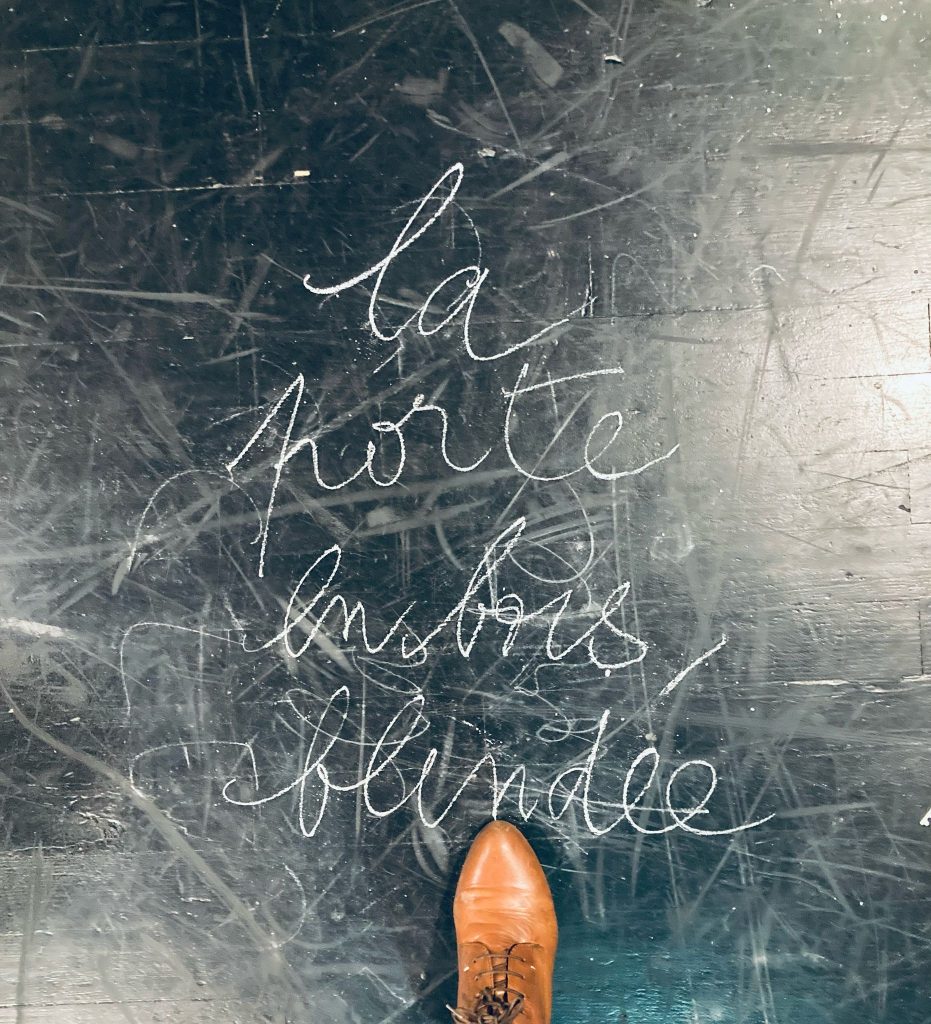 la
porte
en bois
blindée